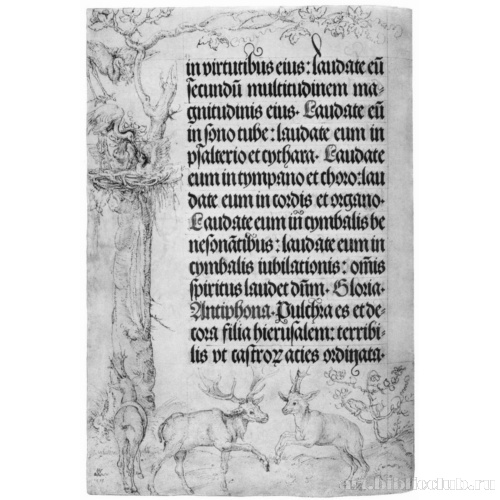 in virtutibus eius: laudate eū
secundū multitudinem ma-
gnitudinis eius. Laudate eū
in sono tube: laudate eum in
psalterio et cythara. Laudate
eum in tympano et choro: lau
date eum in cordis et organo.
Laudate eum in cymbalis be
nesonātibus: laudate eum in
cymbalis iubilationis: om̄is
spiritus laudet dūm. Gloria.
Antiphona. Pulchra es et de-
cora filia hierusalem: terribi-
lis vt castroꝝ acies ordinata.
art.biblioclub.ru